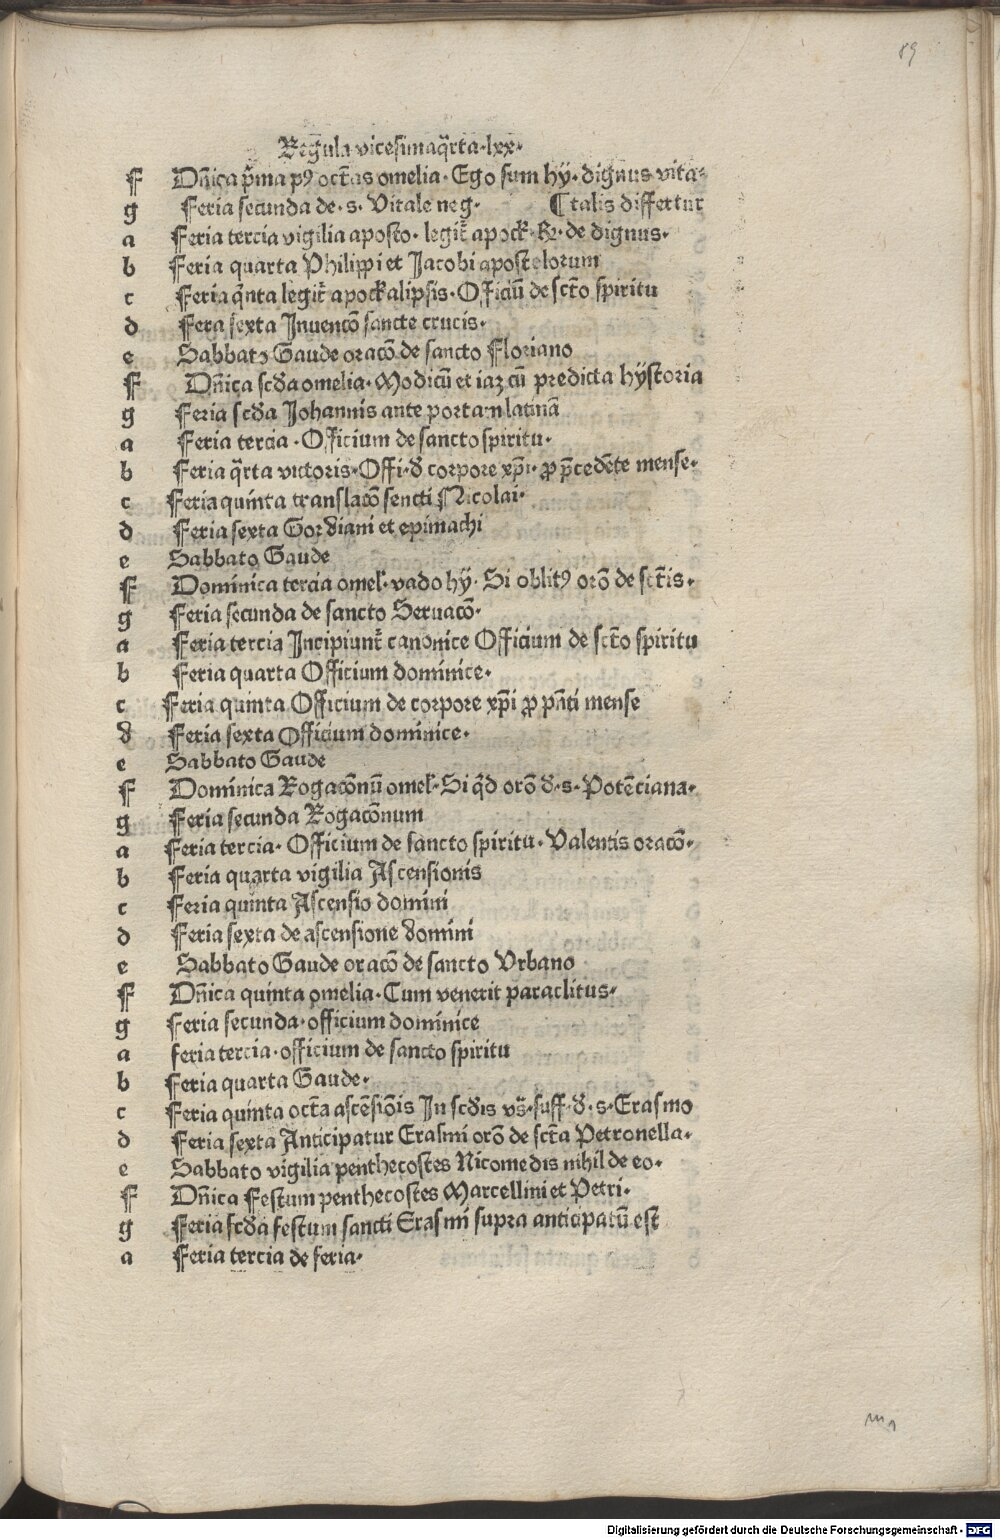 89
Regula vicesimaq̃rta·lxx·
F Dñica p̃ma p9 octãs omelia· Ego sum hy̆· dignus vita-
g Feria secunda de·s· Vitale neg· ¶talis differtur
a Feria tercia vigilia aposto· legit̃ apock· R̃· de dignus·
b Feria quarta Philippi et Jacobi apostolorum
c Feria q̃nta legit̃ apockalipsis· Officiũ de sct̃o spiritu
d Fera sexta Invencõ sancte crucis·
e Sabbato Gaude oracõ de sancto Floriano
F Dñica scd̃a omelia· Modicũ et iaz cũ predicta hystoria
g Feria scd̃a Johannis ante portam latinã
a Feria tercia· Officium de sancto spiritu·
b Feria q̃rta victoris· Offi· d̃ corpore xp̃i· ꝓ p̃cedẽte mense·
c Feria quinta translacõ sencti Nicolai·
d Feria sexta Gordiani et epimachi
e Sabbato Gaude
F Dominica tercia omel· vado hy̆· Si oblit9 orõ de sct̃is·
g Feria secunda de sancto Seruacõ·
a Feria tercia Incipiunt̃ canonice Officium de sct̃o spiritu
b Feria quarta Officium dominice·
c Feria quinta Officium de corpore xp̃i ꝓ pñti mense
d Feria sexta Officium dominice·
e Sabbato Gaude
F Dominica Rogacõnũ omel· Si q̃d orõ d̃·s· Potẽciana·
g Feria secunda Rogacõnum
a Feria tercia· Officium de sancto spiritu· Valentis oracõ·
b Feria quarta vigilia Ascensionis
c Feria quinta Ascensio domini
d Feria sexta de ascensione domini
e Sabbato Gaude oracõ de sancto Vrbano
F Dñica quinta omelia· Cum venerit paraclitus·
g Feria secunda· officium dominice
a feria tercia· officium de sancto spiritu
b Feria quarta Gaude·
c Feria quinta oct̃a ascẽsiõis In scd̃is vs̃· suff· d̃·s· Erasmo
d Feria sexta Anticipatur Erasmi orõ de sct̃a Petronella·
e Sabbato vigilia penthecostes Nicomedis nihil de eo·
F Dñica Festum penthecostes Marcellini et Petri·
g Feria scd̃a festum sancti Erasmi supra anticipatũ est
a Feria tercia de feria·
m1
Digitalisierung gefördert durch die Deutsche Forschungsgemeinschaft - DFG